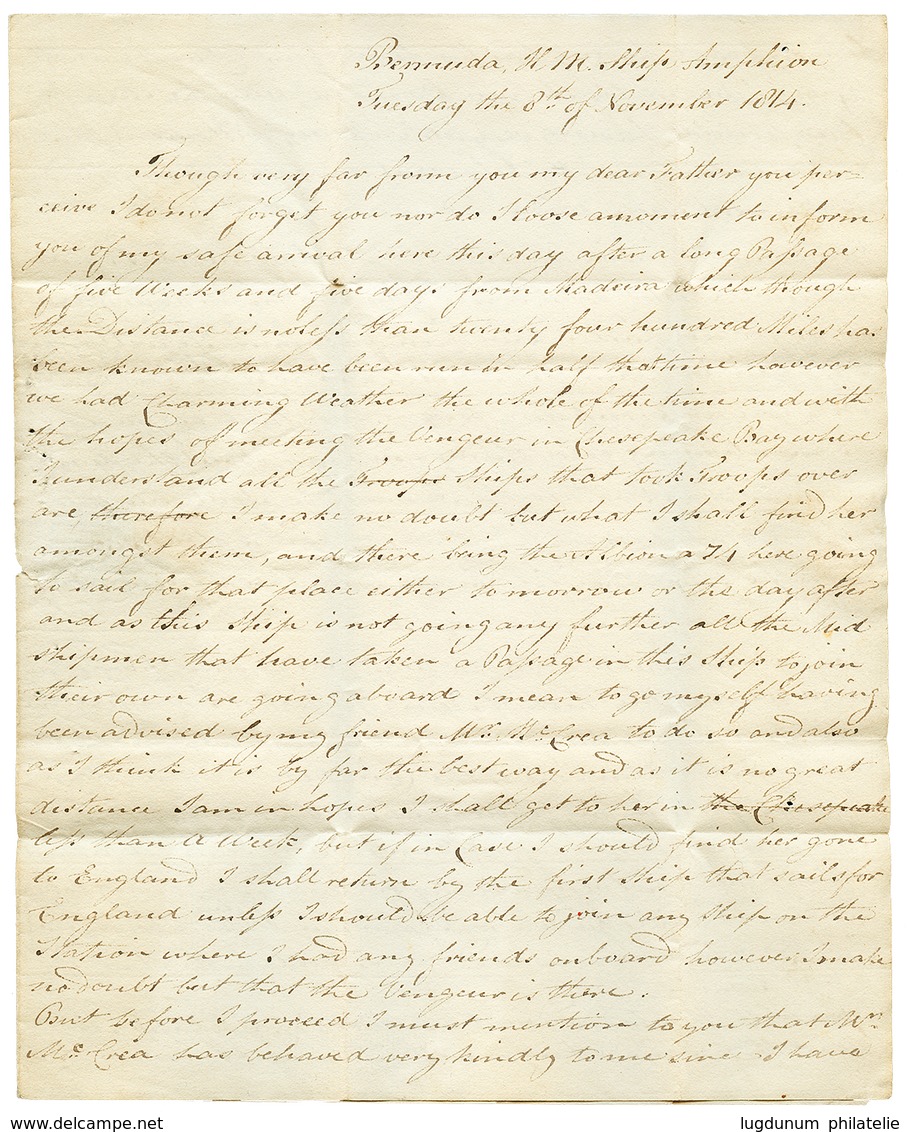 Bermuda, H M. Ship Amphion
Tuesday the 8th of November 1814.
Though very far from you my dear Father you per=
ceive I do not forget you nor do I loose a moment to inform
you of my safe arrival here this day after a long Passage
of five Weeks and five days from Madeira which though
the Distance is no less than twenty four hundred Miles has
been known to have been run in half that time however
we had Charming Weather the whole of the time and with
the hopes of meeting the Vengeur in Chesepeake Bay where
I understand all the Troops Ships that took Troops over
are, therefore I make no doubt but what I shall find her
amongst them, and there being the Albion a 74 here going
to sail for that place either tomorrow or the day after
and as this Ship is not going any further all the Mid
shipmen that have taken a Passage in this Ship to join
their own are going aboard I mean to go myself having
been advised by my friend Mr. McCrea to do so and also
as I think it is by far the best way and as it is no great
distance I am in hopes I shall get to her in the Chesepeake
less than a Week, but if in Case I should find her gone
to England I shall return by the first Ship that sails for
England unless I should be able to join any Ship on the
Station where I had any friends onboard however I make
no doubt but that the Vengeur is there.
But before I proceed I must mention to you that Mr.
McCrea has behaved very kindly to me since I have
www.delcampe.net
lugdunum philatelie